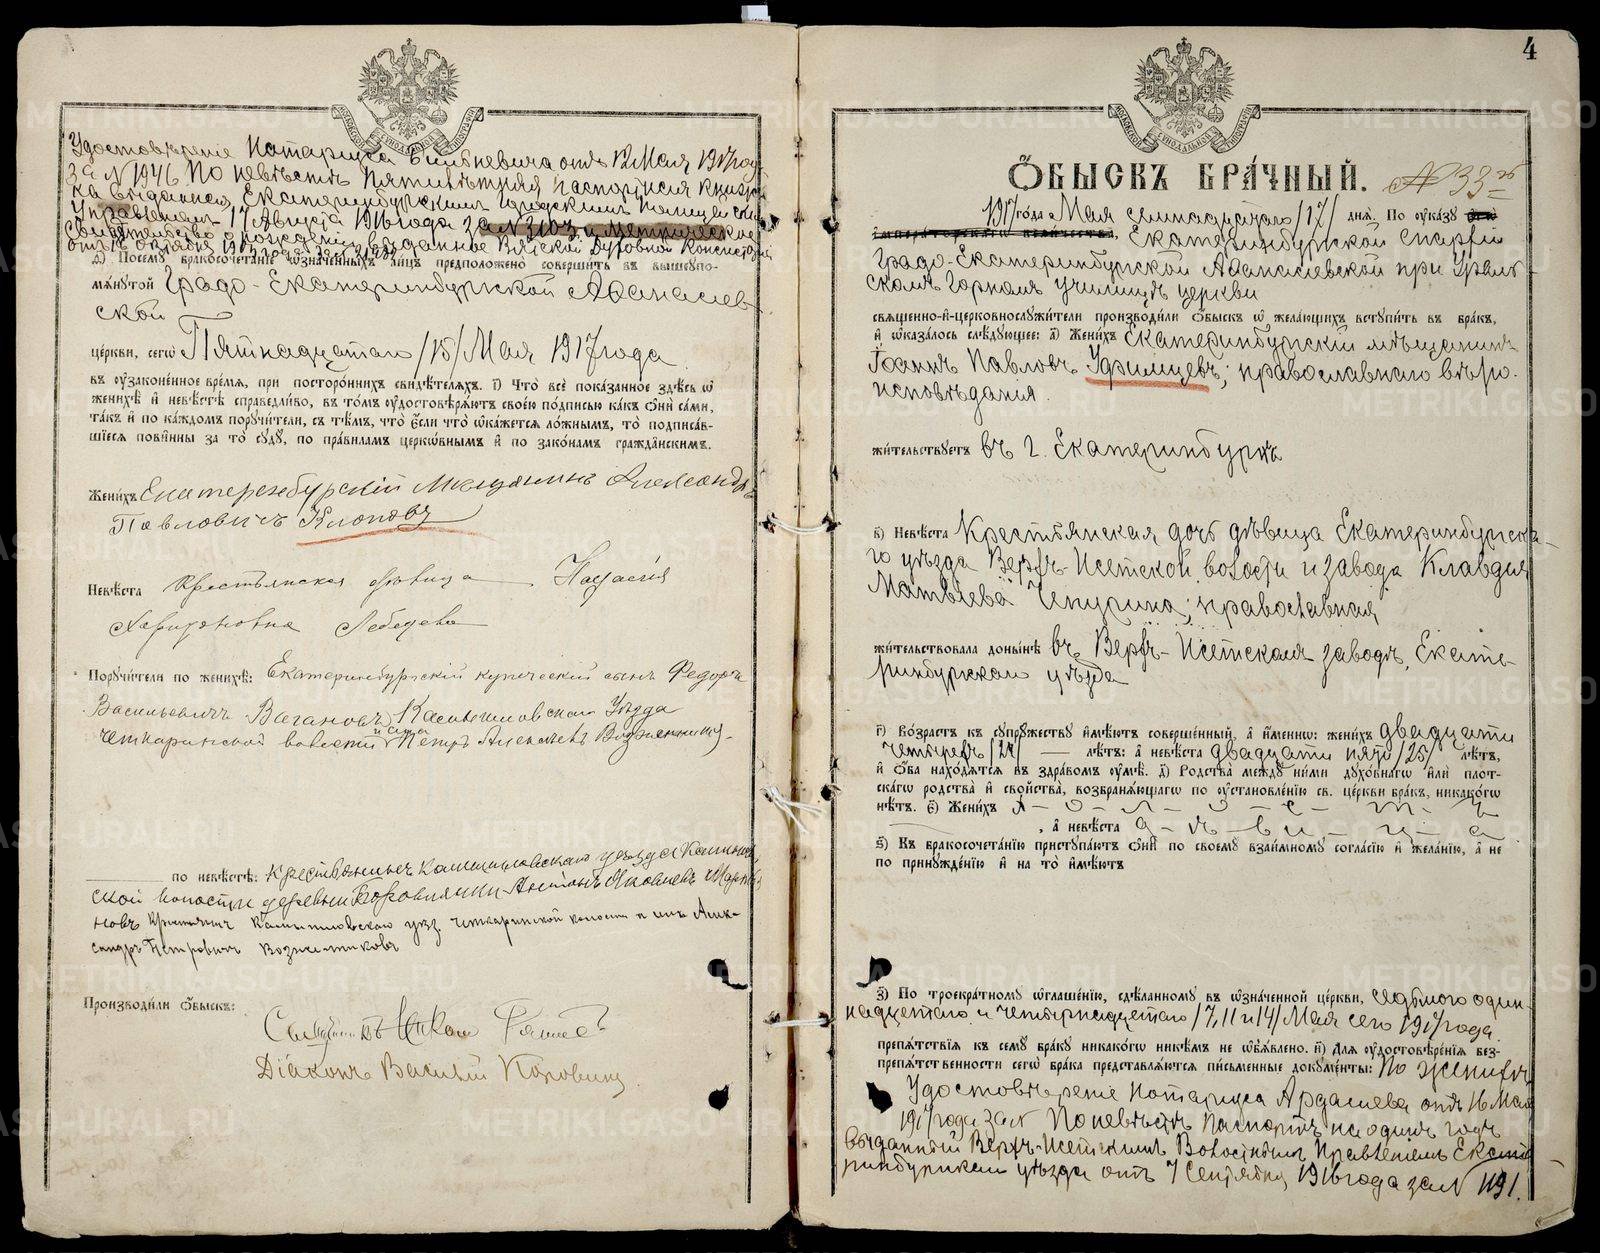 Удостовѣреніе Нотаріуса отъ 12 Мая 1917 год
за N 1946 По невѣстѣ Пятилѣтняя паспортная книж
ка выданная Екатеринбургскимъ городскимъ полицейски
Управленіем 17 Августа 1916 года за N 3103 и метрическое
свидѣтельство о рожденіи, выданное Вятской Духовной Консисторі
д҃) Посемꙋ бракосочета́нїе ѡ҆зна́ченныхъ ли́цъ предположено̀ соверши́ть въ вышеꙋпо-
мѧ́нꙋтой Градо-Екатеринбургской Аѳанасіев
ской
це́ркви, сегѡ̀ Пятнадцатаго /15/ Мая 1917 года
въ ᲂу҆зако́ненное вре́мѧ, при посторо́ннихъ свидѣ́телѧхъ. і҃) Что̀ всѐ пока́занное здѣ́сь ѡ҆
женихѣ̀ и҆ невѣ́стѣ справедли́во, въ то́мъ ᲂу҆достовѣрѧ́ютъ свое́ю по́дписью ка́къ ѻ҆нѝ са́ми,
та́къ и҆ по ка́ждомъ порꙋчи́тели, съ тѣ́мъ, что̀ є҆́сли что̀ ѡ҆ка́жетсѧ ло́жнымъ, то̀ подписа́в-
шїесѧ пови́нны за то̀ сꙋдꙋ̀, по пра́виламъ церко́внымъ и҆ по зако́намъ гражда́нскимъ.
Жени́хъ Екатеринбургскій Мѣщанинъ Александръ
Павловичъ Клоповъ
Невѣ́ста Крестьянская дѣвица Настасія
Харитоновна Лебедева
Порꙋчи́тели по женихѣ̀: Екатеринбургскій купеческій сынъ Федоръ
Васильевичъ Вагановъ, Камышловскаго Уѣзда
Четкаринской волости Петръ Алексѣевъ
по невѣ́стѣ: Крестьянинъ Камышловскаго уѣзда
ской волости деревни Боровлянки Антонъ Яковлевъ
новъ Крестьянин Камышловскаго уѣз. Четкаринской волости Алек-
сандръ Петровичъ
Производи́ли ѻ҆́быскъ:
Свящ
Діаконъ Василій Коровинъ
4
Ѻ҆́БЫСКЪ БРА́ЧНЫЙ. № 33
1917 го́да Мая семнадцатаго /17/ днѧ̀. По ᲂу҆ка́зꙋ є҆гѡ̀
и҆мпера́торскагѡ вели́чества, Екатеринбургской Епархіи
Градо-Екатеринбургской Аѳанасіевской при Ураль
скомъ Горномъ училищѣ церкви
свѧще́нно-и҆-церковнослꙋжи́тели производи́ли ѻ҆́быскъ ѡ҆ жела́ющихъ встꙋпи́ть въ бра́къ,
и҆ ѡ҆каза́лось слѣ́дꙋющее: а҃) Жени́хъ Екатеринбургскій мѣщанинъ
Іоаннъ Павловъ Уфимцевъ; православнаго вѣро-
исповѣданія.
жи́тельствꙋетъ въ г. Екатеринбургѣ
в҃) Невѣ́ста Крестьянская дочь дѣвица Екатеринбургска-
го уѣзда Верхъ-Исетской волости и завода Клавдія
Матвѣева Чепурина; православная
жи́тельствовала доны́нѣ въ Верхъ-Исетскомъ заводѣ, Екате-
ринбургскаго уѣзда
г҃) Во́зрастъ къ сꙋпрꙋ́жествꙋ и҆мѣ́ютъ соверше́нный, а҆ и҆́меннѡ: жени́хъ двадцати
четырехъ /24/ — лѣ́тъ: а҆ невѣ́ста двадцати пяти /25/ лѣ́тъ,
и҆ ѻ҆́ба нахо́дѧтсѧ въ здра́вомъ ᲂу҆мѣ̀. д҃) Родства̀ междꙋ̀ ни́ми дꙋхо́внагѡ и҆лѝ плот-
ска́гѡ родства̀ и҆ сво́йства, возбранѧ́ющагѡ по ᲂу҆становле́нїю св. це́ркви бра́къ, никако́гѡ
нѣ́тъ. є҃) Жени́хъ х-о-л-о-с-т-ъ
, а҆ невѣ́ста д-ѣ-в-и-ц-а
ѕ҃) Къ бракосочета́нїю пристꙋпа́ютъ ѻ҆нѝ по своемꙋ̀ взаи́мномꙋ согла́сїю и҆ жела́нїю, а҆ не
по принꙋжде́нїю и҆ на то̀ и҆мѣ́ютъ
з҃) По троекра́тномꙋ ѡ҆глаше́нїю, сдѣ́ланномꙋ въ ѡ҆зна́ченной це́ркви, седьмого один-
надцатаго и четырнадцатаго /7, 11 и 14/ Мая сего 1917 года
препѧ́тствїѧ къ семꙋ̀ бра́кꙋ никако́гѡ никѣ́мъ не ѡ҆б̾ѧ́влено. и҃) Для ᲂу҆достовѣре́нїѧ без-
препѧ́тственности сегѡ̀ бра́ка представлѧ́ютсѧ пи́сьменные докꙋме́нты: По женихѣ
Удостовѣреніе Нотаріуса Ардашева отъ 16 Мая
1917 года за N По невѣстѣ Паспортъ на одинъ годъ
выданный Верхъ-Исетскимъ Волостнымъ Правленіемъ Екате
ринбургскаго уѣзда отъ 7 Сентября 1916 года за N 1191.
METRIKI.GASO-URAL.RU